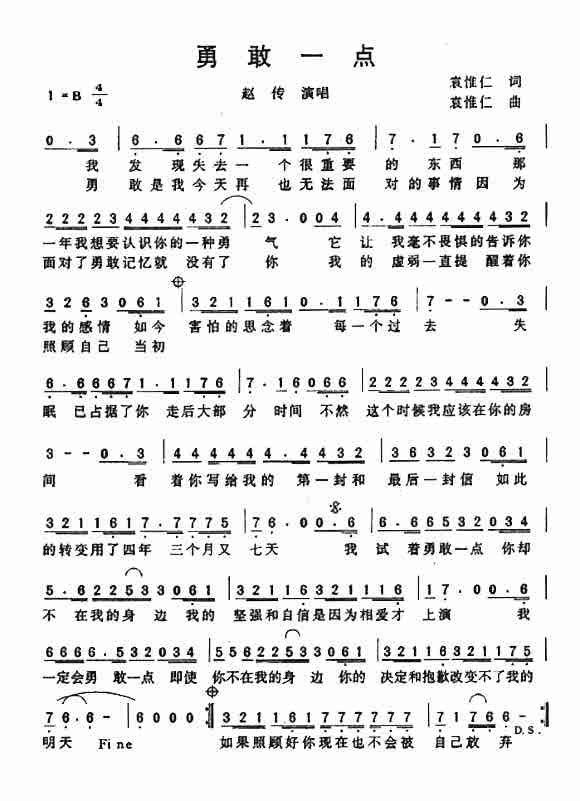 勇敢一点
1=B 4/4 赵传 演唱 袁惟仁 词
袁惟仁 曲
0.3 | 6.6671.1176 | 7.170.6 |
我 发 现失去一 个很重要 的 东西 那
勇 敢是我今天再 也无法面 对的事情因为
22223444444432 | 23.004 | 4.4444444432 |
一年我想要认识你的一种勇 气 它 让 我毫不畏惧的告诉你
面对了勇敢记忆就 没有了 你 我 的 虚弱一直提 醒着你
3263061 | 3211610.1176 | 7--0.3 |
我的感情 如今 害怕的思念着 每一个过 去 失
照顾自己 当初
6.66671.1176 | 7.16066 | 22223444432 |
眠 已占据了你 走后大部 分 时间 不然 这个时候我应该在你的房
3--0.3 | 44444.4432 | 36323061 |
间 看 着你写给我的 第一封和 最后一封信 如此
3211617.7775 | 76.00.6 | 6.66532034 |
的转变用了四年 三个月又 七天 我 试 着勇敢一点 你却
5.6225533061 | 3211616321116 | 17.00.6 |
不 在我的身 边 我的 坚强和自信是因为相爱才 上演 我
6666.532034 | 556225533061 | 3211616321175 |
一定会勇 敢一点 即使 你不在我的身 边 你的 决定和抱歉改变不了我的
76.6- | 6000 :‖ 3211617.7775 | 17766- :‖
明天 Fine 如果照顾好你现在也不会被 自己放弃 D.S.